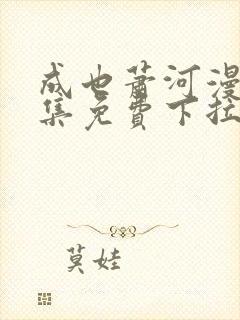 成也萧河漫
集免费下拉
莫娃